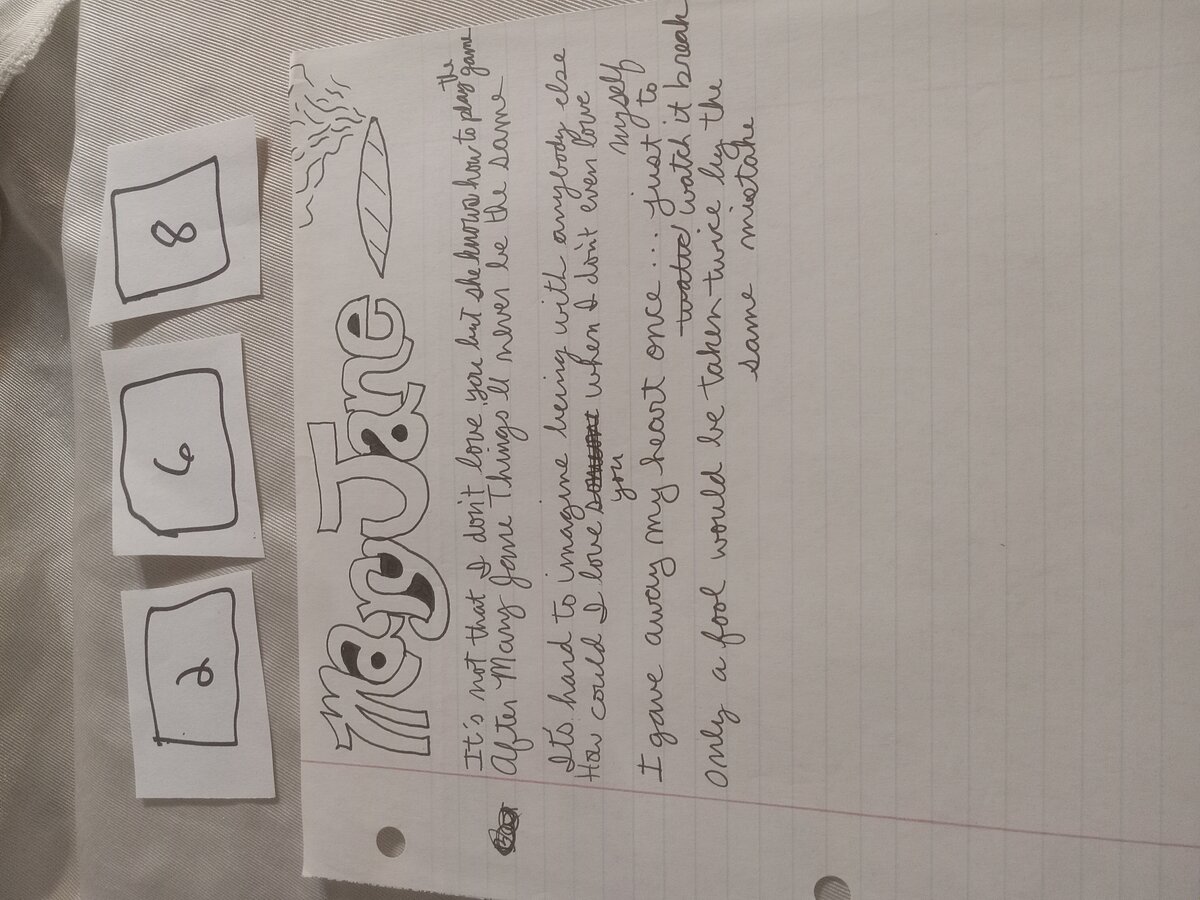 2 6 8
Mary Jane
It's not that I don't love you but she knows how to play the game
After Mary Jane Things'll never be the same
Its hard to imagine being with anybody else
How could I love when I don't even love
you myself
I gave away my heart once... just to
watch it break
Only a fool would be taken twice by the
same mistake